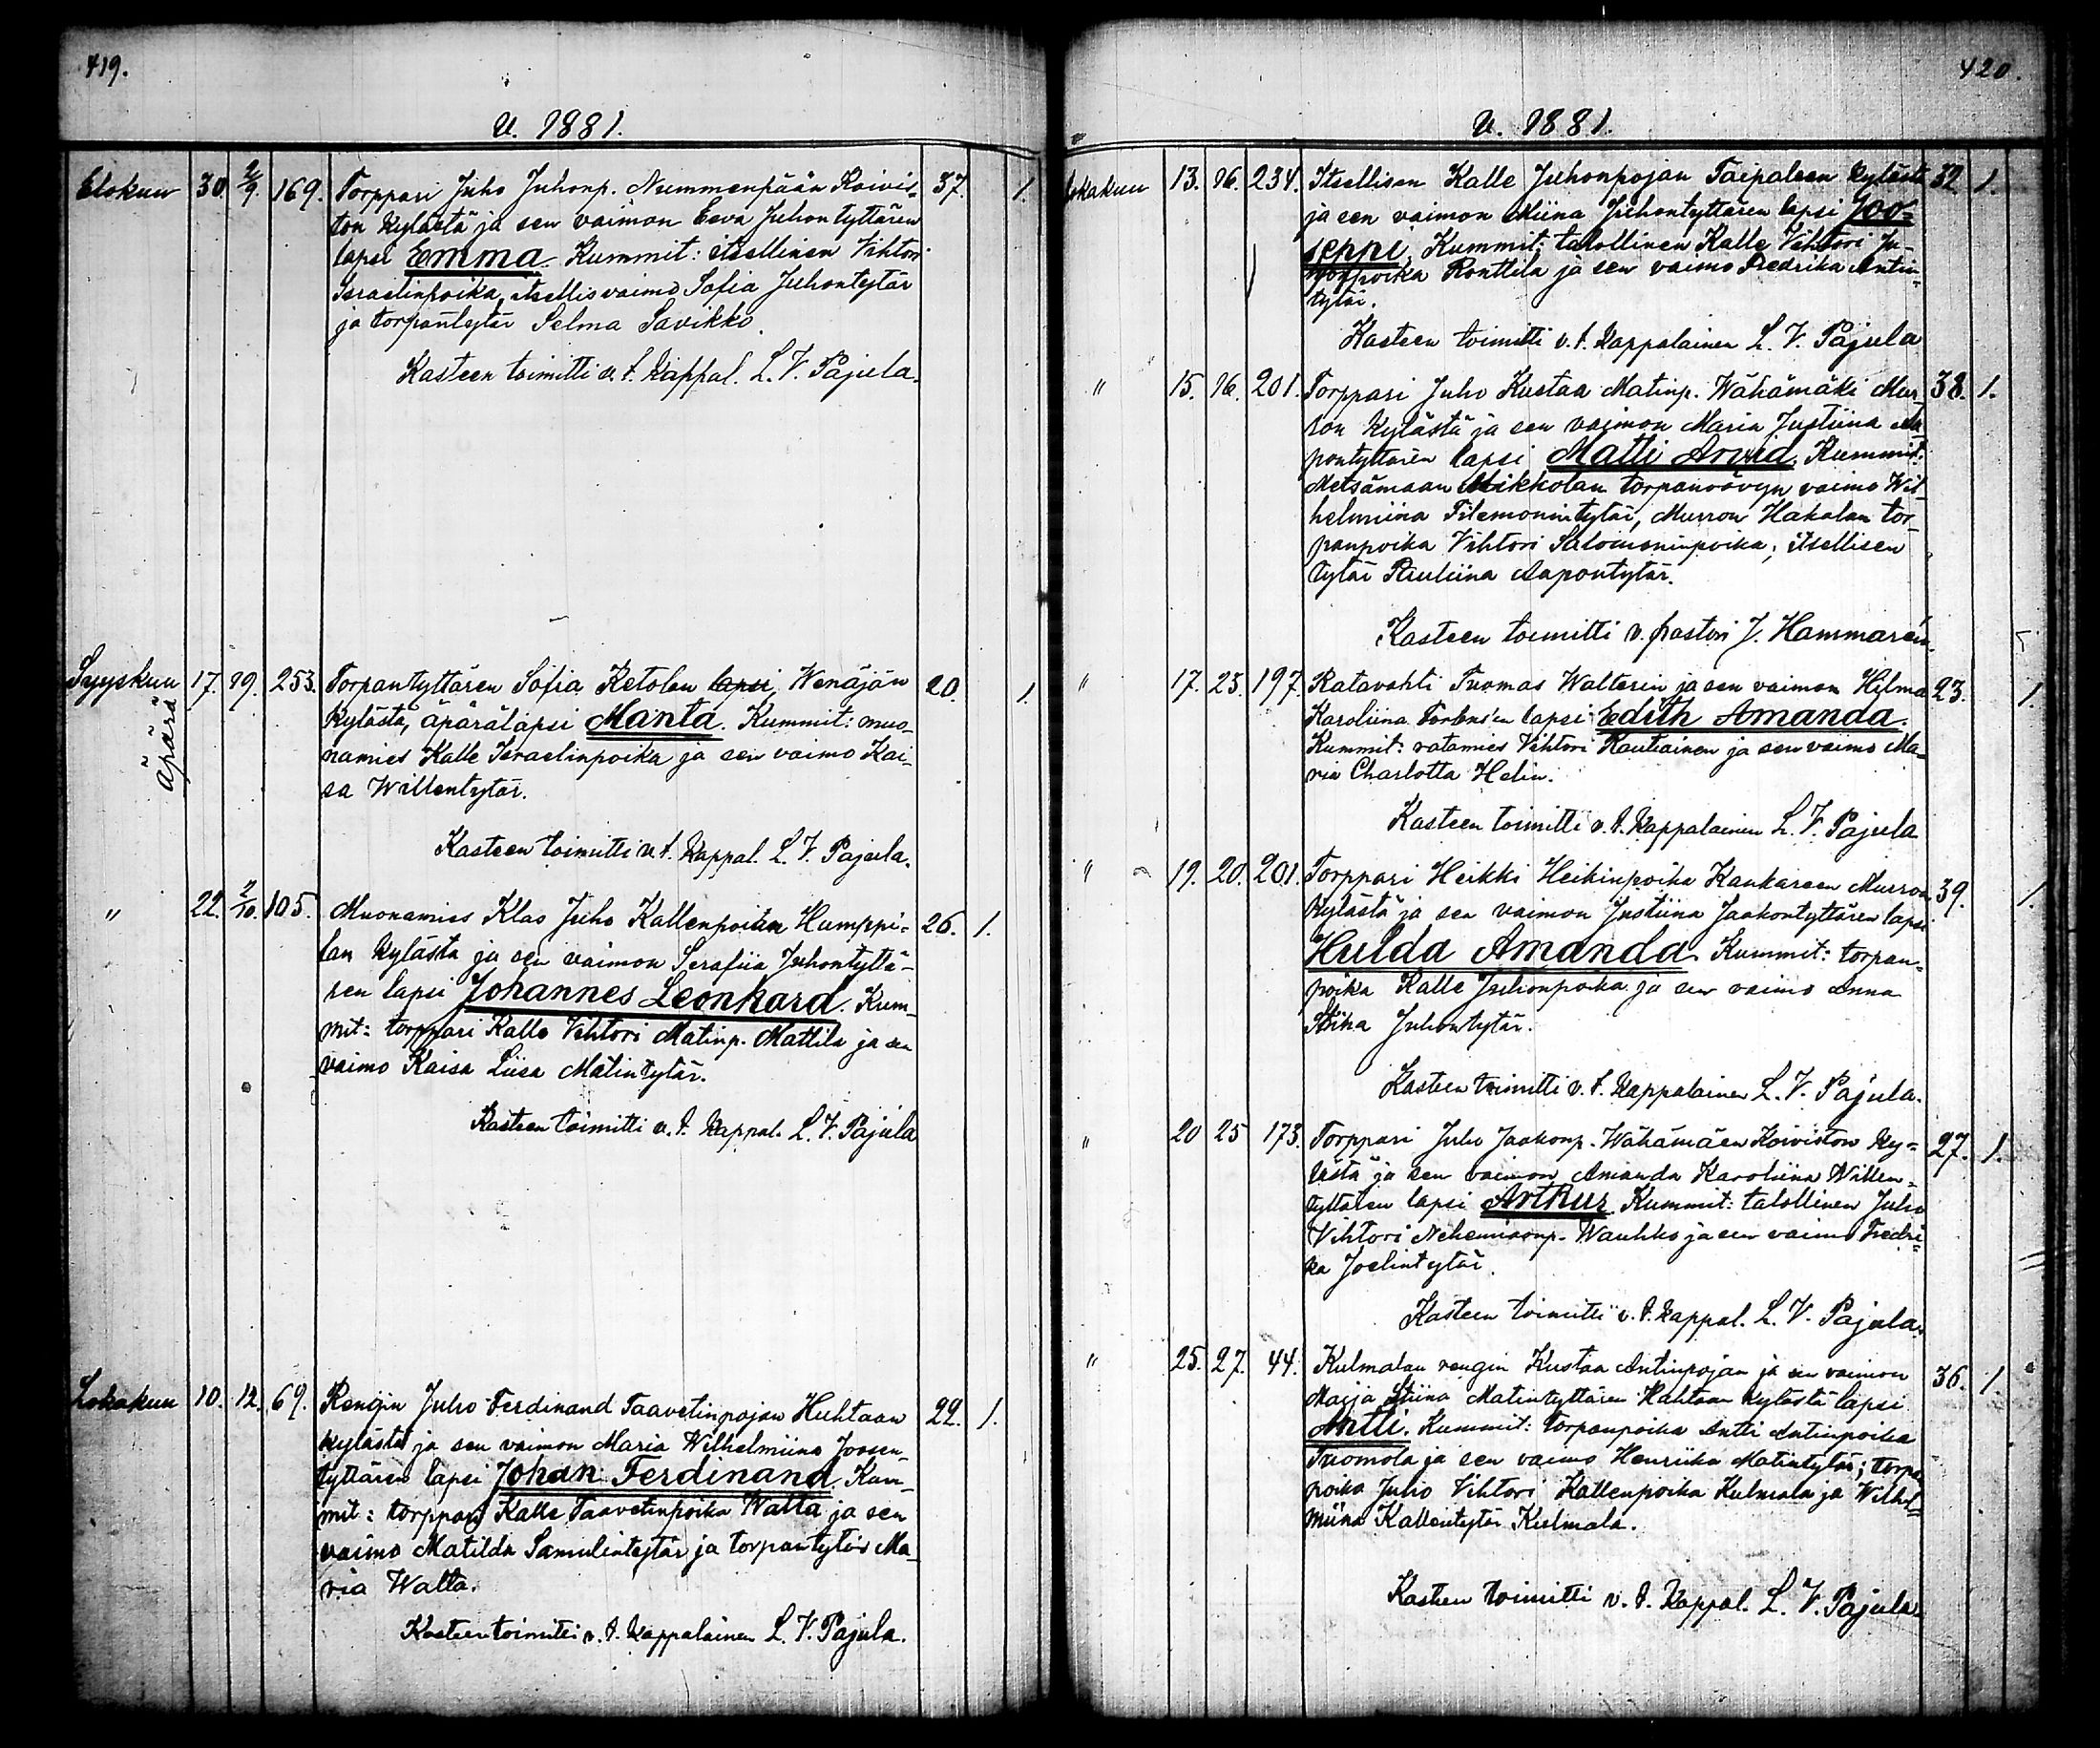 419.
v. 1881.
Elokuu 30. 2/9. 169. Torppari Juho Juhonp. Nummenpään Koivis- 37. 1.
ton kylästä ja sen vaimon Eeva Juhontyttären
lapsi Emma. Kummit: itsellinen Vihtori
Israelinpoika, itsellisvaimo Sofia Juhontytär
ja torpantytär Selma Savikko.
Kasteen toimitti v.t. kappal. L. V. Pajula.
Syyskuu 17. 19. 253. Torpantyttären Sofia Ketolan lapsi, Wenäjän 20. 1.
Äpärä
kylästä, äpärälapsi Manta. Kummit: muo-
namies Kalle Israelinpoika ja sen vaimo Kai-
sa Willentytär.
Kasteen toimitti v.t. kappal. L. V. Pajula.
" 22. 2/10. 105. Muonamies Klas Juho Kallenpoian Humppi- 26. 1.
lan kylästä ja sen vaimon Serafiia Juhontyttä-
ren lapsi Johannes Leonhard. Kum-
mit: torppari Kalle Vihtori Matinp. Mattila ja sen
vaimo Kaisa Liisa Matintytär.
Kasteen toimitti v.t. kappal. L. V. Pajula
Lokakuu 10. 12. 69. Rengin Juho Ferdinand Taavetinpojan Huhtaan 22. 1.
kylästä ja sen vaimon Maria Wilhelmiina Joosen-
tyttären lapsi Johan Ferdinand. Kum-
mit: torppari Kalle Taavetinpoika Walta ja sen
vaimo Matilda Samulintytär ja torpantytär Ma-
ria Walta.
Kasteen toimitti v.t. kappalainen L. V. Pajula.
420.
v. 1881.
Lokakuu 13. 16. 234. Itsellisen Kalle Juhonpojan Taipaleen kylästä 32 1.
ja sen vaimon Miina Juhontyttären lapsi Joo-
seppi. Kummit: talollinen Kalle Vihtori Ju-
honpoika Ronttila ja sen vaimo Fredrika Antin-
tytär.
Kasteen toimitti v.t. kappalainen L. V. Pajula
" 15. 16. 201. Torppari Juho Kustaa Matinp. Wähämäki Mur- 38. 1.
ron kylästä ja sen vaimon Maria Justiina Aa-
pontyttären lapsi Matti Arvid. Kummit:
Metsämaan Mikkolan torpanvävyn vaimo Wil-
helmiina Filemonintytär, Murron Hakalan tor-
panpoika Vihtori Salomoninpoika, itsellisen
tytär Pauliina Aapontytär.
Kasteen toimitti v. pastori J. Hammarén.
" 17. 25. 197. Ratavahti Tuomas Walterin ja sen vaimon Hilma 23. 1.
Karoliina Forlens'en lapsi Edith Amanda.
Kummit: ratamies Vihtori Rautiainen ja sen vaimo Ma-
ria Charlotta Helin.
Kasteen toimitti v.t. kappalainen L. V. Pajula
" 19. 20. 201. Torppari Heikki Heikinpoika Kankareen Murron 39. 1.
kylästä ja sen vaimon Justiina Jaakontyttären lapsi
Hulda Amanda. Kummit: torpan-
poika Kalle Juhonpoika ja sen vaimo Anna
Stiina Juhontytär.
Kasteen toimitti v.t. kappalainen L. V. Pajula.
" 20 25 173. Torppari Juho Jaakonp. Wähämäen Koiviston ky- 27. 1.
lästä ja sen vaimon Amanda Karoliina Willen-
tyttären lapsi Arthur. Kummit: talollinen Juho
Vihtori Nehemiaanp. Wauhko ja sen vaimo Fredri-
ka Joelintytär.
Kasteen toimitti v.t. kappal. L. V. Pajula.
" 25. 27. 44. Kulmalan rengin Kustaa Antinpojan ja sen vaimon 36. 1.
Maija Stiina Matintyttären Huhtaan kylästä lapsi
Antti. Kummit: torpanpoika Antti Antinpoika
Tuomola ja sen vaimo Henriika Matintytär; torpan
poika Juho Vihtori Kallenpoika Kulmala ja Wilhel-
miina Kallentytär Kulmala.
Kasteen toimitti v.t. kappal. L. V. Pajula.